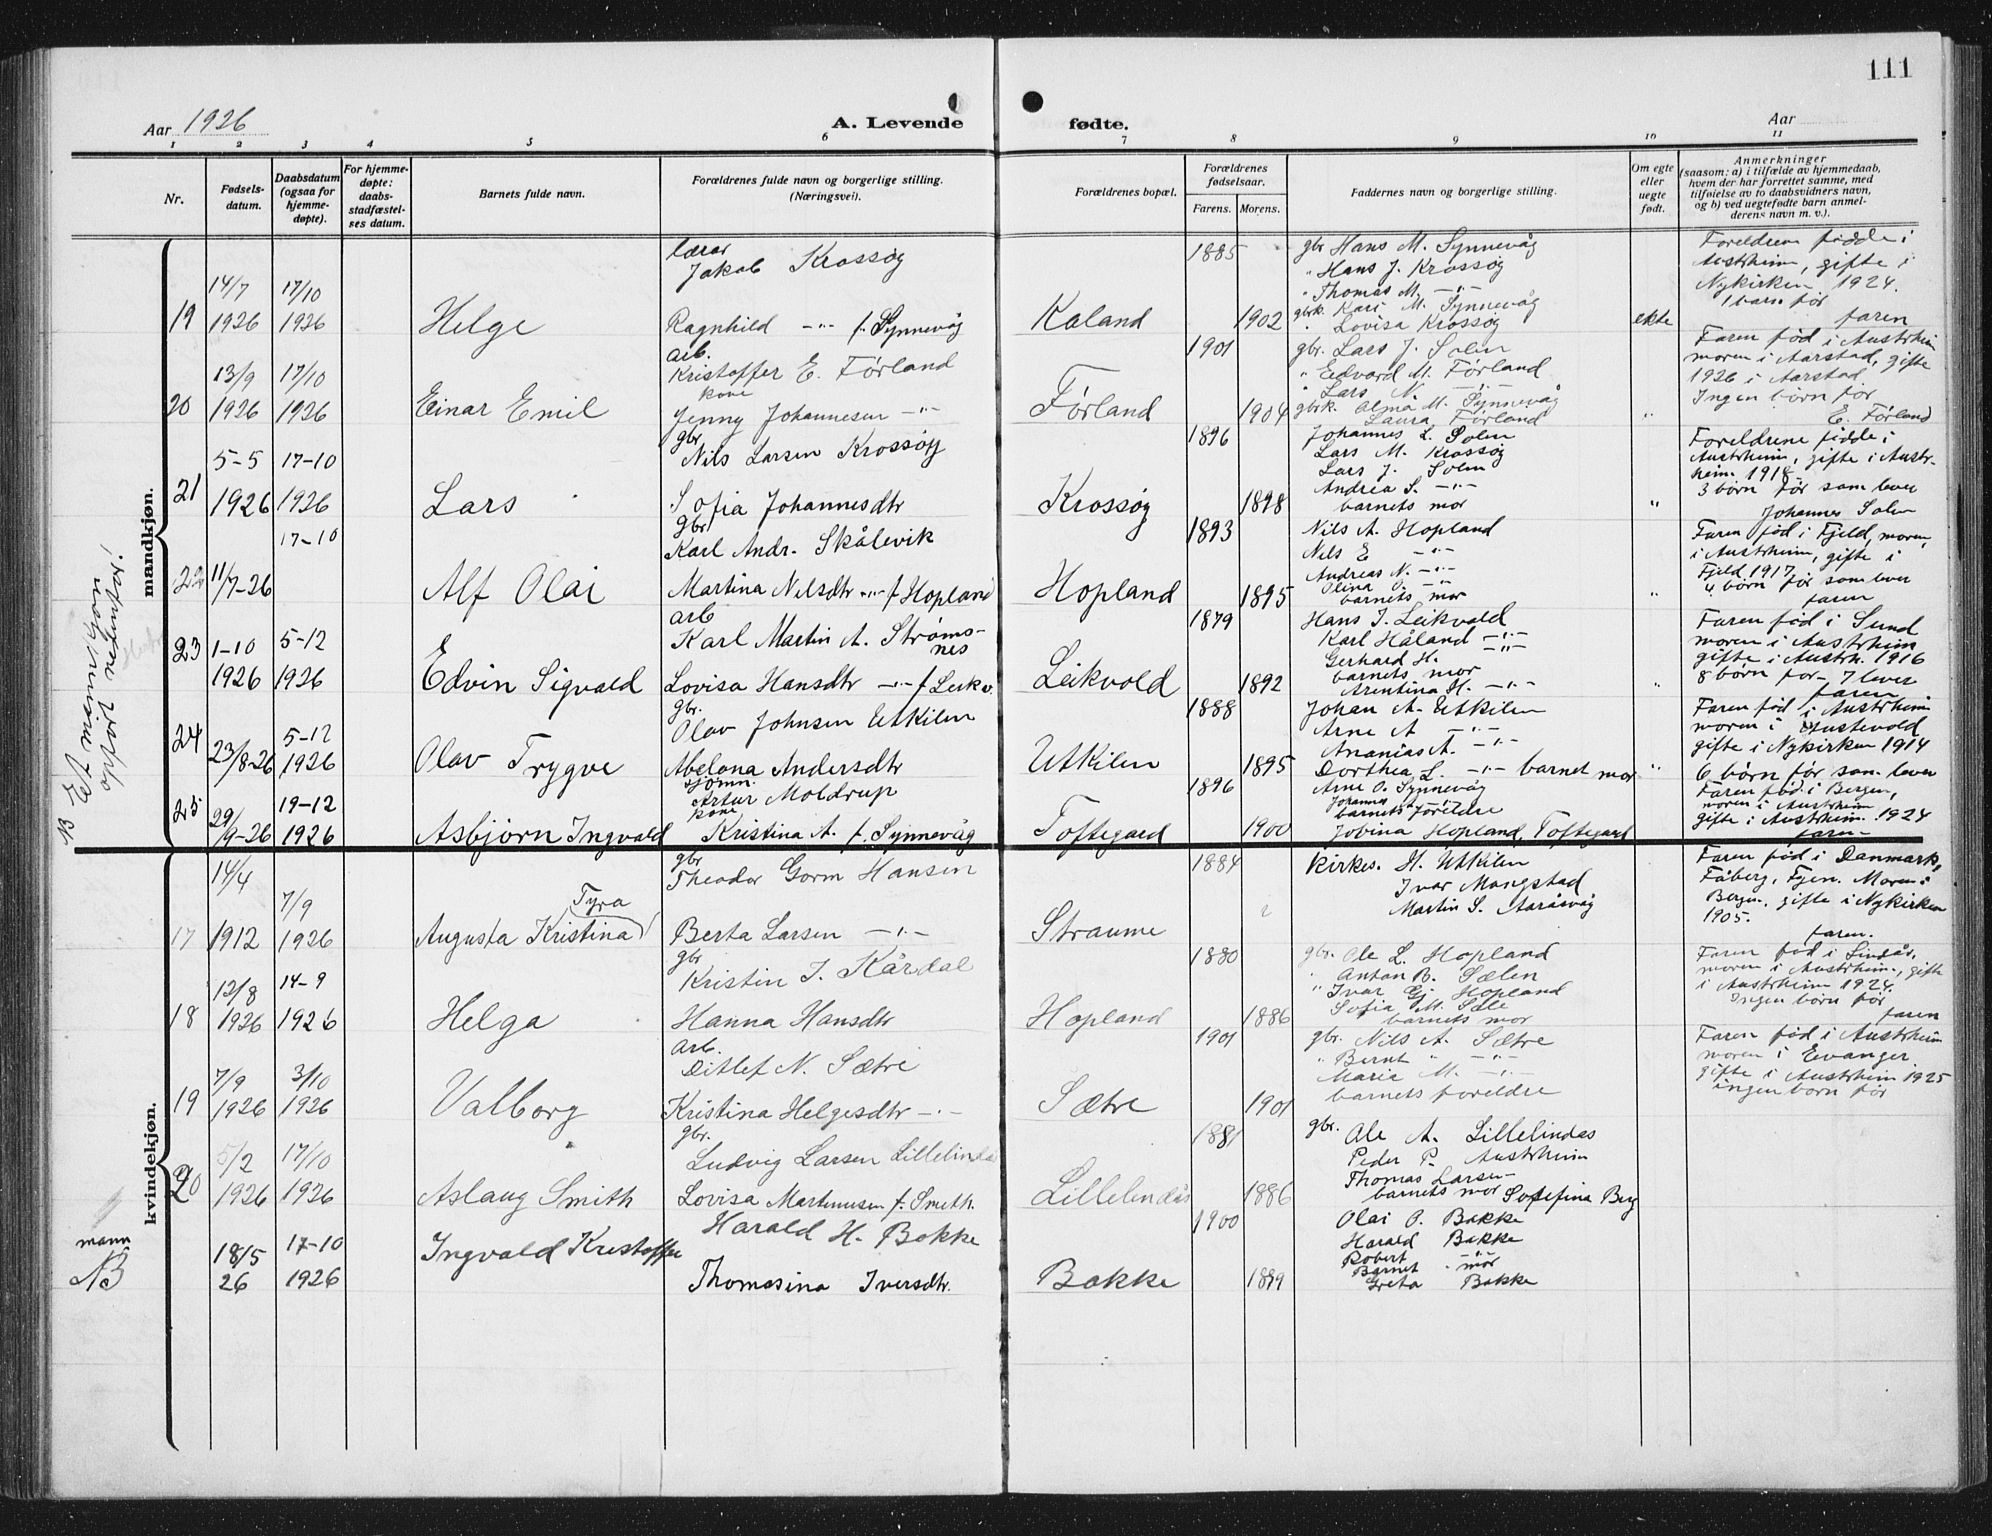 111
Aar 1926
A. Levende fødte.
Aar
1 2 3 4 5 6 7 8 9 10 11
Nr.
Fødsels-
datum.
Daabsdatum
(ogsaa for
hjemme-
døpte).
For hjemme-
døpte:
daabs-
stadfæstel-
ses datum.
Barnets fulde navn.
Forældrenes fulde navn og borgerlige stilling.
(Næringsvei).
Forældrenes bopæl.
Forældrenes
fødselsaar.
Farens. Morens.
Faddernes navn og borgerlige stilling.
Om egte
eller
uegte
født.
Anmerkninger
(saasom: a) i tilfælde av hjemmedaab,
hvem der har forrettet samme, med
tilføielse av to daabsvidners navn,
og b) ved uegtefødte barn anmel-
derens navn m. v.).
mandkjøn.
19
14/7
1926
17/10
1926
Helge
lærar
Jakob Krossøy
Ragnhild -"- f. Synnevåg
Kaland
1885
1902
gbr Hans M. Synnevåg
" Hans J. Krossøy
" Thomas M. -"-
gbrk. Kari M. Synnevåg
" Lovisa Krossøy
ekte
Foreldrene fødde i
Austrheim, gifte i
Nykirken 1924.
1 barn før
faren
20
13/9
1926
17/10
1926
Einar Emil
arb.
Kristoffer E. Førland
kone
Jenny Johannesen -"-
Førland
1901
1904
gbr. Lars J. Solen
" Edvard M. Førland
" Lars N. -"-
gbrk. Alma M. Synnevåg
Laura Førland
"
Faren fød i Austrheim
moren i Aarstad, gifte
1926 i Aarstad
Ingen børn før
E. Førland
21
5-5
1926
17-10
1926
Lars
gbr
Nils Larsen Krossøy
Sofia Johannesdtr
Krossøy
1896
1898
Johannes L. Solen
Lars M. Krossøy
Lars J. Solen
Andrea S. -"-
barnets mor
"
Foreldrene fødde i
Austrheim, gifte i Austr-
heim 1918
3 børn før som lever
Johannes Solen
22
11/7-26
17-10
Alf Olai
gbr
Karl Andr. Skålevik
Martina Nilsdtr -"- f. Hopland
Hopland
1893
1895
Nils A. Hopland
Nils E -"-
Andreas N. -"-
Olina O. -"-
barnets mor
"
Faren fød i Fjeld, moren
i Austrheim, gifte i
Fjeld 1917
4 børn før som lever
faren
23
1-10
1926
5-12
1926
Edvin Sigvald
arb
Karl Martin A. Strøms-
nes
Lovisa Hansdtr -"- f. Leikv.
Leikvold
1879
1892
Hans J. Leikvold
Karl Håland -"-
Gerhard H. -"-
barnets mor
Arentina H. -"-
"
Faren fød i Sund
moren i Austrheim
gifte i Austrh. 1916
8 børn før - 7 lever
faren
24
23/8-26
5-12
1926
Olav Trygve
gbr.
Olav Johnsen Utkilen
Abelona Andersdtr
Utkilen
1888
1895
Johan A. Utkilen
Arne A -"-
Ananias A. -"-
Dorthea L. -"- barnet mor
"
Faren fød i Austrheim
moren i Austevold
gifte i Nykirken 1914
6 børn før som lever
25
29/9-26
19-12
1926
Asbjørn Ingvald
sjømn.
Artur Moldrup
kone
Kristina A. f. Synnevåg
Toftegard
1896
1900
Arne O. Synnevåg
Johannes -"-
barnets foreldre
Jovina Hopland, Toftegard
Faren fød i Bergen,
moren i Austrheim
gifte i Austrheim 1924
faren
NB Et mannkjøn
nr 21
kvindekjøn.
17
14/4
1912
7/9
1926
Augusta Kristina Tyra
gbr
Theodor Gorm Hansen
Berta Larsen -"-
Straume
1884
kirkes. H. Utkilen
Ivar Mongstad
Martin S. Aaråsvåg
Faren fød i Danmark,
Fåberg, Fyen. Moren i
Bergen, gifte i Nykirken
1905.
faren.
18
12/8
1926
14-9
1926
Helga
gbr
Kristin J. Kårdal
Hanna Hansdtr
Hopland
1880
1886
gbr. Ole L. Hopland
" Anton B. Sælen
" Ivar Gj. Hopland
Sofia M. Sæle
barnets mor
Faren fød i Lindås,
moren i Austrheim, gifte
i Austrheim 1924.
Ingen børn før
faren
19
7/9
1926
3/10
1926
Valborg
arb.
Ditlef N. Sætre
Kristina Helgesdtr -"-
Sætre
1901
1901
gbr. Nils A. Sætre
" Bernt " -"-
Marie M. -"-
barnets foreldre
Faren fød i Austrheim
moren i Evanger
gifte i Austrheim 1925
ingen born før
20
5/2
1926
17/10
1926
Aslaug Smith
gbr.
Ludvig Larsen Lillelindås
Lovisa Martinusen f. Smith.
Lillelindås
1881
1886
gbr. Ole A. Lillelindås
Peder P. Austrheim
Thomas Larsen
barnets mor Sofefina Berg
mann
NB
18/5
26
17-10
1926
Ingvald Kristoffer
Harald H. Bakke
Thomasina Iversdtr.
Bakke
1900
1899
Olai O. Bakke
Harald Bakke
Robert -"-
Barnet mor
Greta Bakke